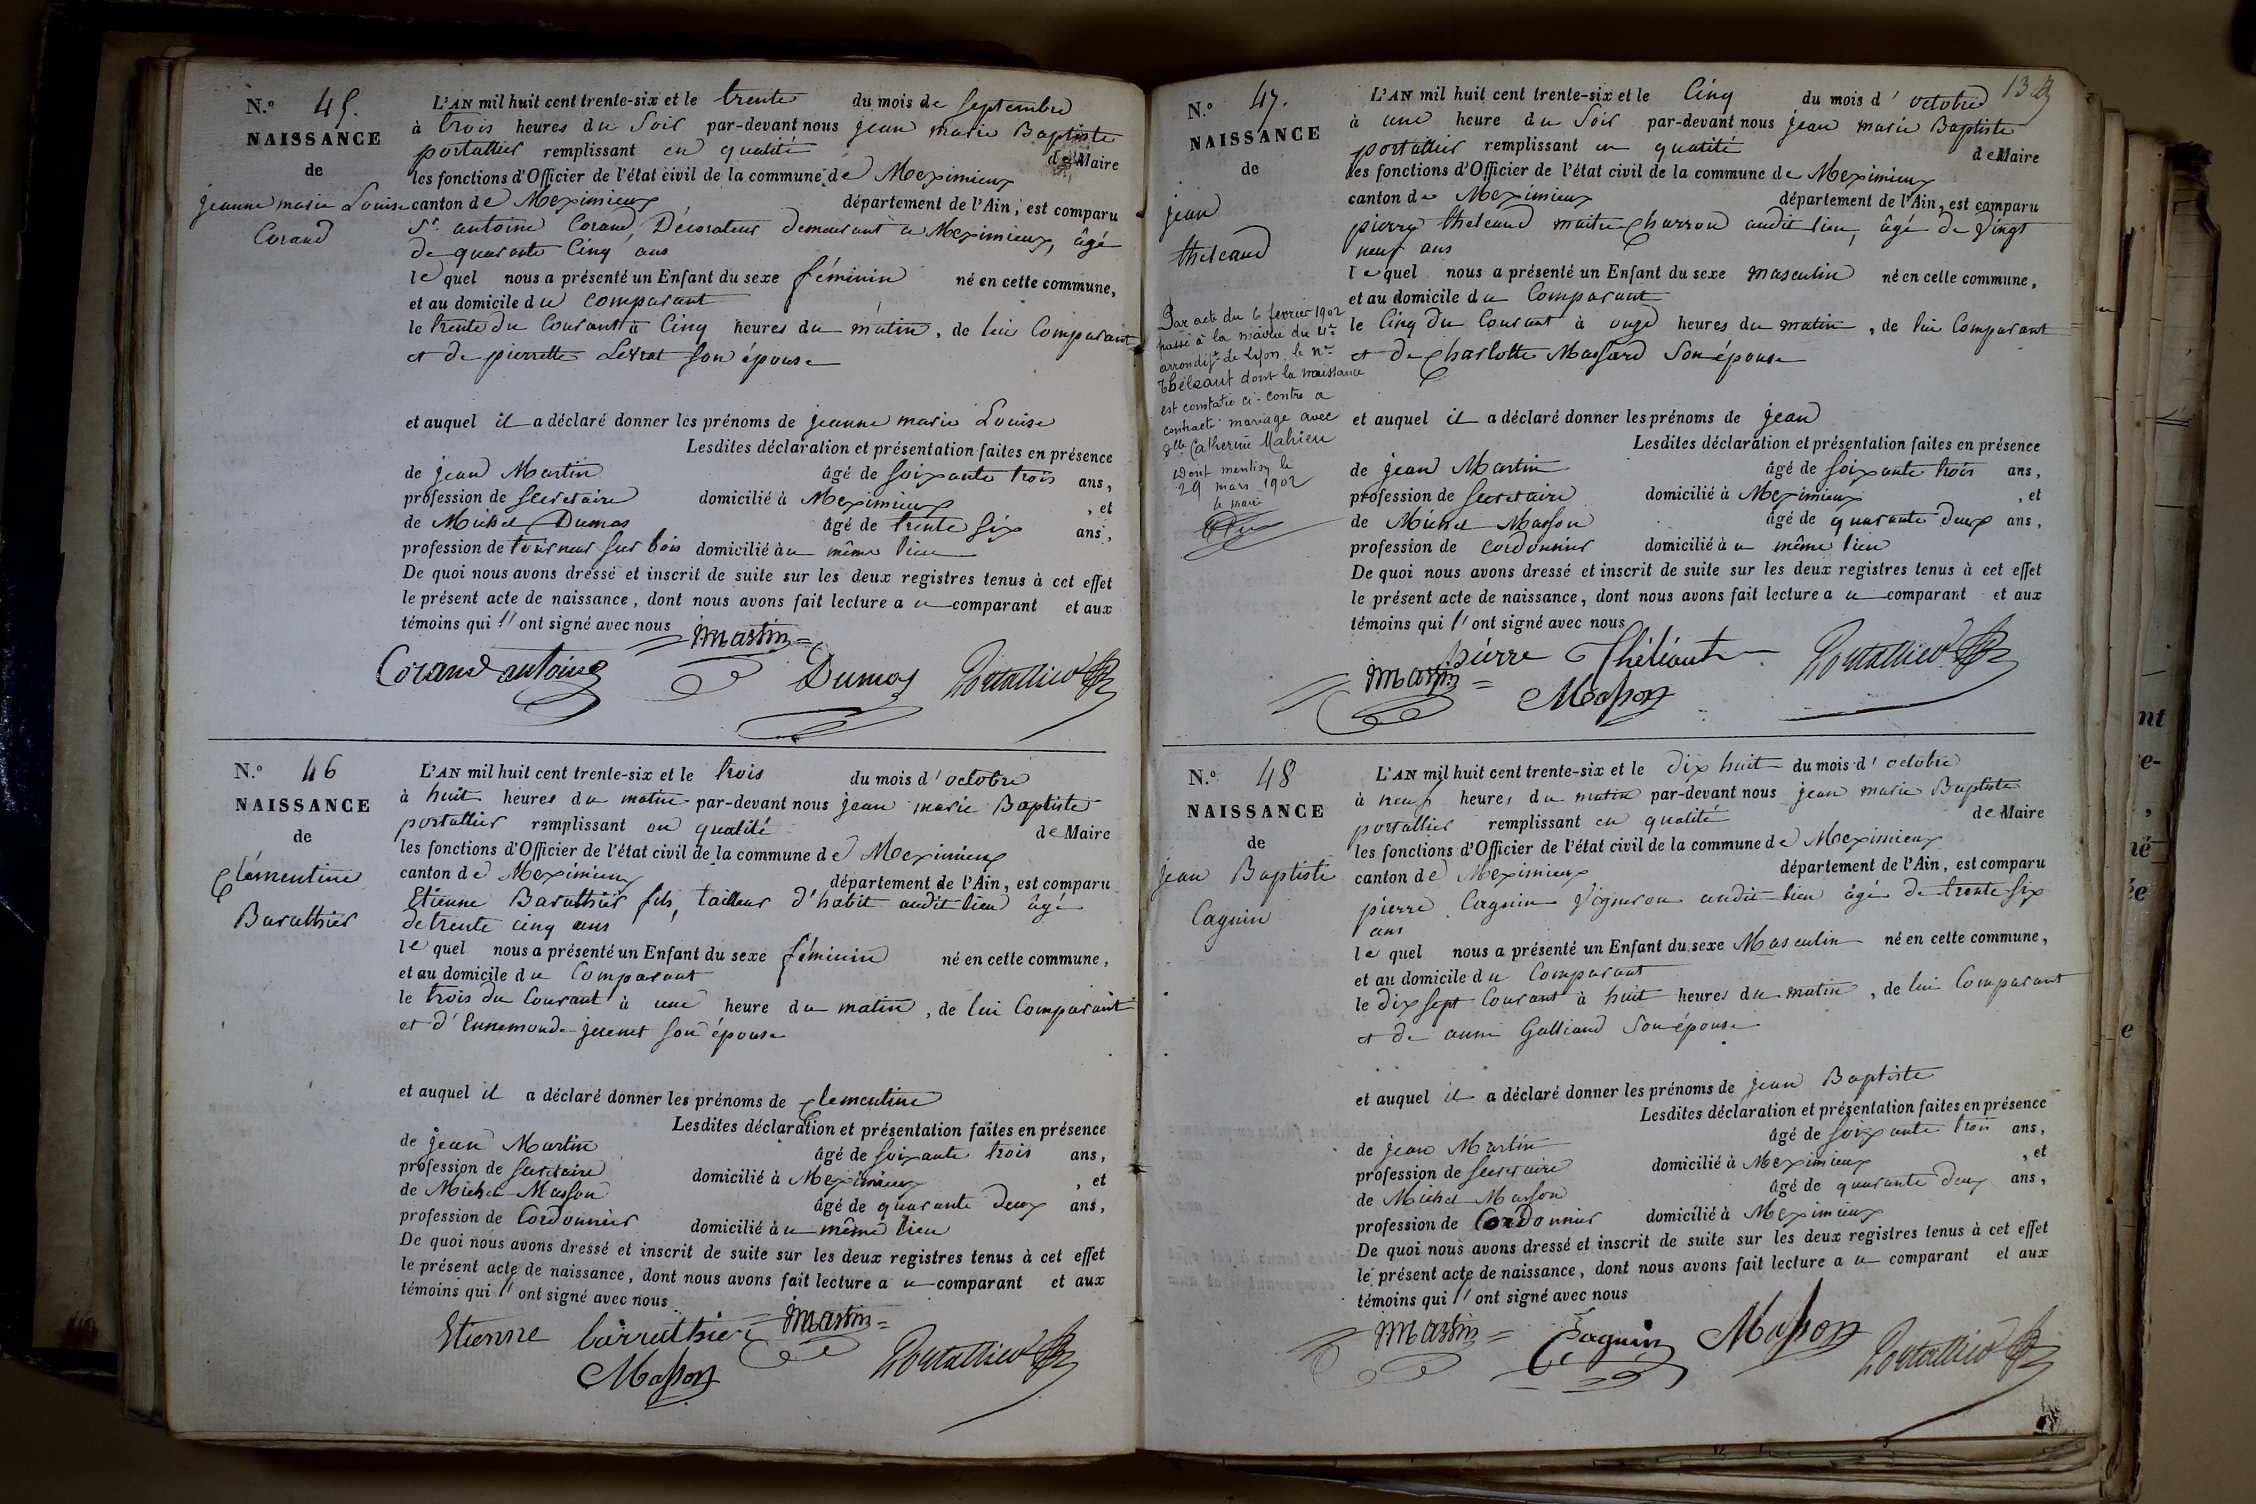 N.º 45.
NAISSANCE
de
jeanne marie Louise
Corand
L'AN mil huit cent trente-six et le trente du mois de septembre
à trois heures du soir par-devant nous jean marie Baptiste
portallier remplissant en qualité de Maire
les fonctions d'Officier de l'état civil de la commune de Meximieux
canton de Meximieux département de l'Ain, est comparu
Sr. antoine Corand, Décorateur demeurant à Meximieux, âgé
de quarante Cinq ans
le quel nous a présenté un Enfant du sexe féminin né en cette commune,
et au domicile du comparant
le trente du Courant à Cinq heures du matin, de lui Comparant
et de pierrette Levrat son épouse
et auquel il a déclaré donner les prénoms de jeanne marie Louise
Lesdites déclaration et présentation faites en présence
de jean Martin âgé de soixante trois ans,
profession de secretaire domicilié à Meximieux, et
de Michel Dumas âgé de trente six ans,
profession de tourneur sur bois domicilié au même lieu
De quoi nous avons dressé et inscrit de suite sur les deux registres tenus à cet effet
le présent acte de naissance, dont nous avons fait lecture au comparant et aux
témoins qui l'ont signé avec nous
martin
Corand antoine Dumas Portallier
N.º 46
NAISSANCE
de
Clémentine
Baruthier
L'AN mil huit cent trente-six et le trois du mois d'octobre
à huit heures du matin par-devant nous jean marie Baptiste
portallier remplissant en qualité de Maire
les fonctions d'Officier de l'état civil de la commune de Meximieux
canton de Meximieux département de l'Ain, est comparu
Etienne Baruthier fils, tailleur d'habit audit lieu âgé
de trente cinq ans
le quel nous a présenté un Enfant du sexe féminin né en cette commune,
et au domicile du Comparant
le trois du Courant à une heure du matin, de lui Comparant
et d'Ennemonde son épouse
et auquel il a déclaré donner les prénoms de Clementine
Lesdites déclaration et présentation faites en présence
de jean Martin âgé de soixante trois ans,
profession de secretaire domicilié à Meximieux, et
de Michel Masson âgé de quarante deux ans,
profession de Cordonnier domicilié au même lieu
De quoi nous avons dressé et inscrit de suite sur les deux registres tenus à cet effet
le présent acte de naissance, dont nous avons fait lecture au comparant et aux
témoins qui l'ont signé avec nous
Etienne barruthier martin
Masson Portallier
13
N.º 47.
NAISSANCE
de
jean
theleand
Par acte du 6 février 1902
passé à la mairie du 4e
arrondist de Lyon, le né
Théléaut dont la naissance
est constatée ci-contre a
contracté mariage avec
dlle Catherine Mahieu
Dont mention le
29 mars 1902
le maire
L'AN mil huit cent trente-six et le Cinq du mois d'octobre
à une heure du soir par-devant nous jean marie Baptiste
portallier remplissant en qualité de Maire
les fonctions d'Officier de l'état civil de la commune de Meximieux
canton de Meximieux département de l'Ain, est comparu
pierre theleand maitre Charron audit lieu, âgé de vingt
neuf ans
le quel nous a présenté un Enfant du sexe masculin né en cette commune,
et au domicile du Comparant
le Cinq du Courant à onze heures du matin, de lui Comparant
et de Charlotte Massard son épouse
et auquel il a déclaré donner les prénoms de jean
Lesdites déclaration et présentation faites en présence
de jean Martin âgé de soixante trois ans,
profession de secretaire domicilié à Meximieux, et
de Michel Masson âgé de quarante deux ans,
profession de cordonnier domicilié au même lieu
De quoi nous avons dressé et inscrit de suite sur les deux registres tenus à cet effet
le présent acte de naissance, dont nous avons fait lecture au comparant et aux
témoins qui l'ont signé avec nous
pierre Théléaut Portallier
martin Masson
N.º 48
NAISSANCE
de
jean Baptiste
Cagnin
L'AN mil huit cent trente-six et le dix huit du mois d'octobre
à neuf heures du matin par-devant nous jean marie Baptiste
portallier remplissant en qualité de Maire
les fonctions d'Officier de l'état civil de la commune de Meximieux
canton de Meximieux département de l'Ain, est comparu
pierre Cagnin Vigneron audit lieu âgé de trente six
ans
le quel nous a présenté un Enfant du sexe Masculin né en cette commune,
et au domicile du Comparant
le dix sept Courant à huit heures du matin, de lui Comparant
et de anne Galliand son épouse
et auquel il a déclaré donner les prénoms de jean Baptiste
Lesdites déclaration et présentation faites en présence
de jean Martin âgé de soixante trois ans,
profession de secretaire domicilié à Meximieux, et
de Michel Masson âgé de quarante deux ans,
profession de Cordonnier domicilié à Meximieux
De quoi nous avons dressé et inscrit de suite sur les deux registres tenus à cet effet
le présent acte de naissance, dont nous avons fait lecture au comparant et aux
témoins qui l'ont signé avec nous
martin Cagnin Masson Portallier